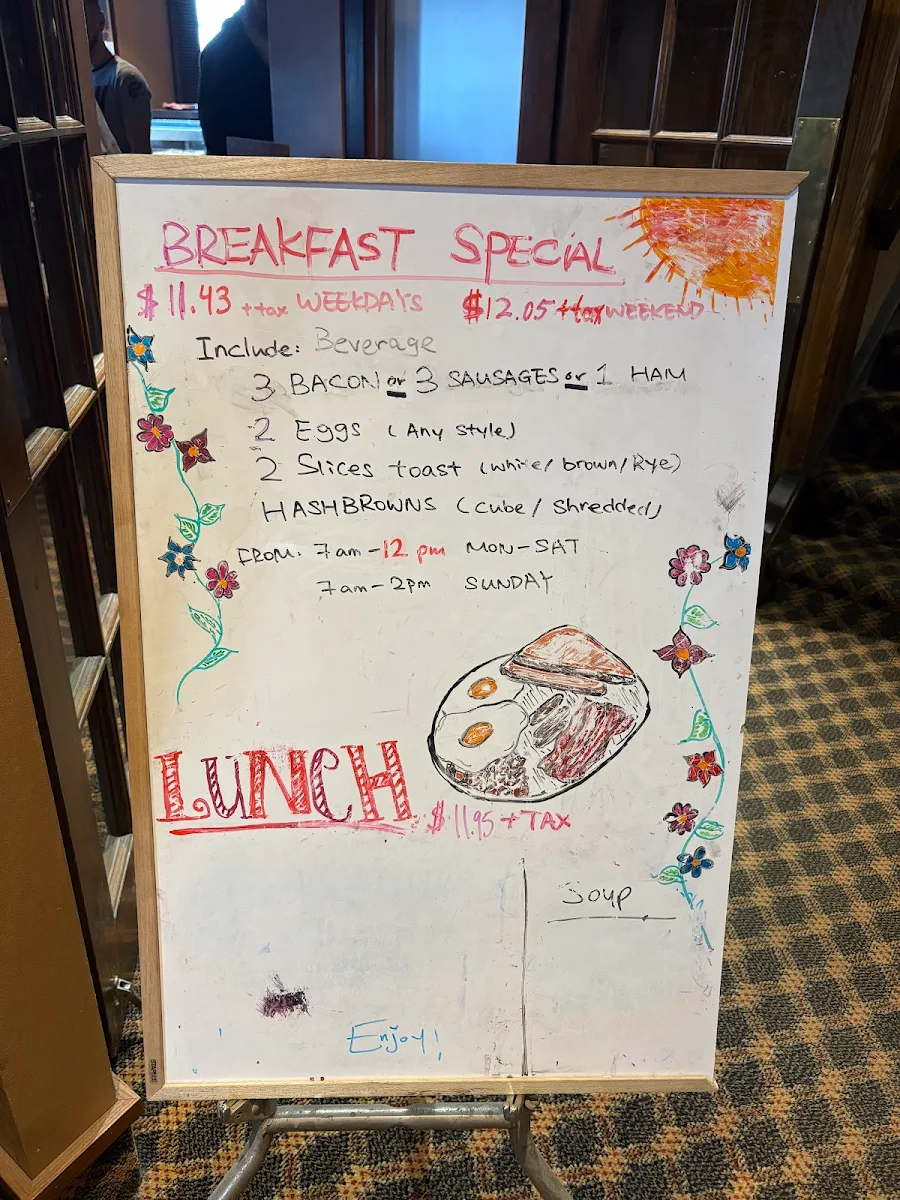 BREAKFAST SPECIAL
$11.43 + tax WEEKDAYS $12.05 + tax WEEKEND
Include: Beverage
3 BACON or 3 SAUSAGES or 1 HAM
2 Eggs (Any style)
2 Slices toast (white/brown/Rye)
HASHBROWNS (cube/Shredded)
FROM: 7am - 12 pm MON-SAT
7am - 2pm SUNDAY
LUNCH $11.95 + TAX
Soup
Enjoy!